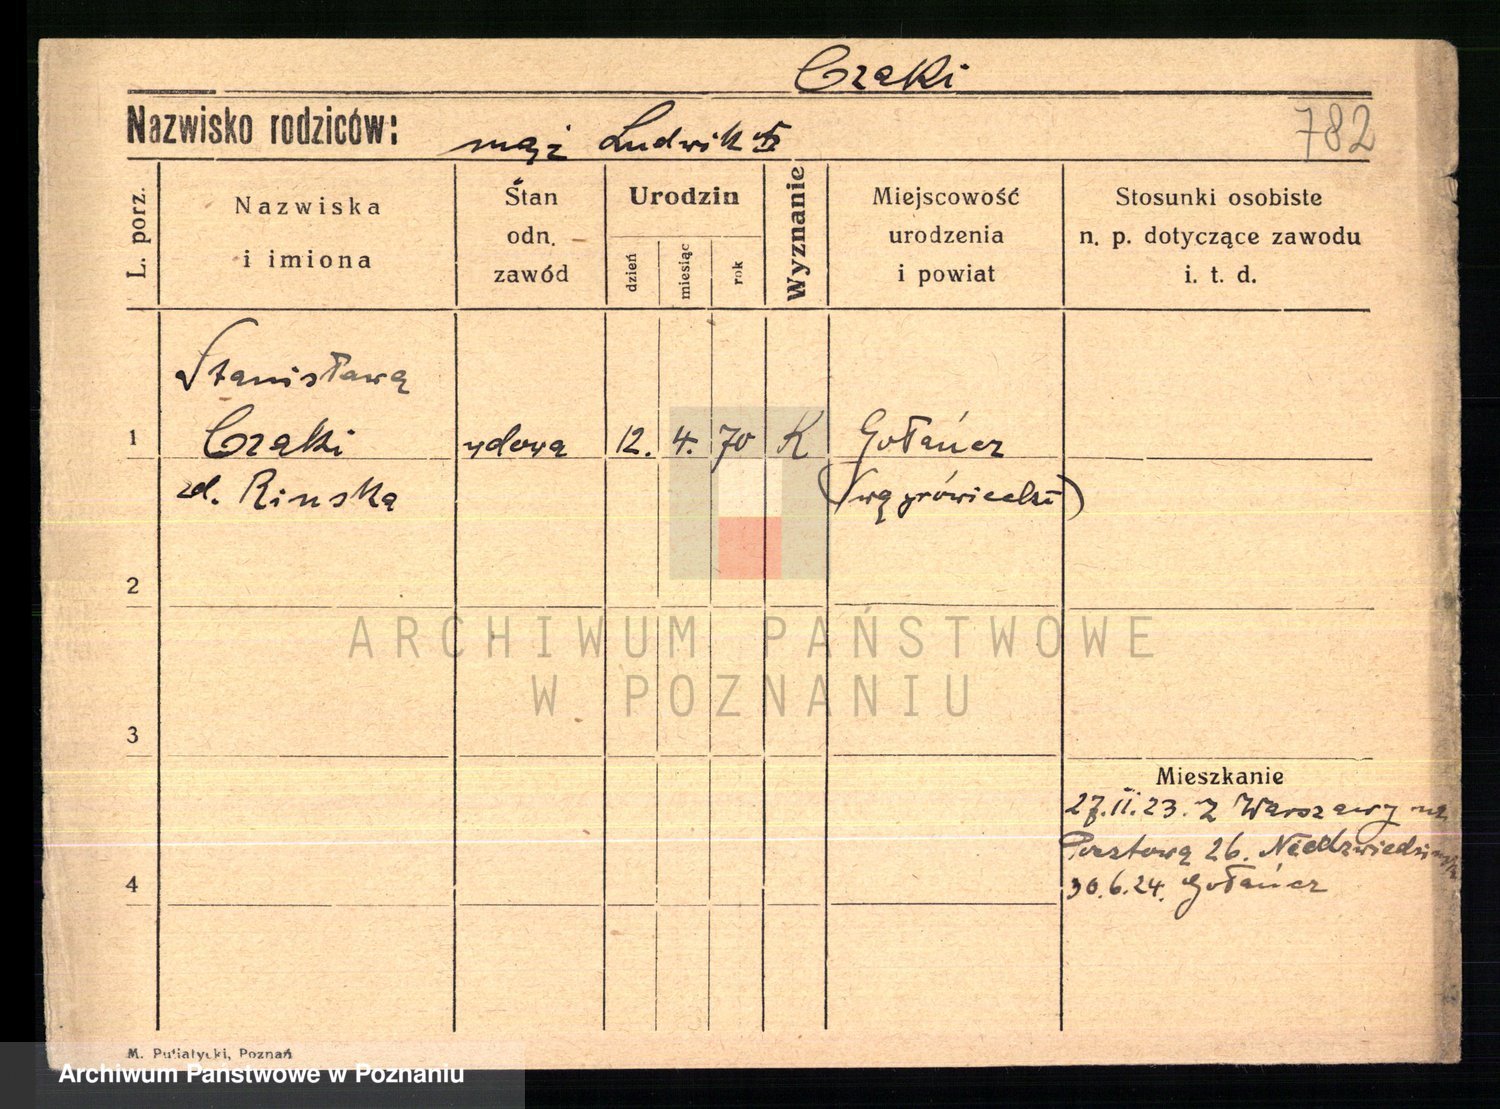 Czaki
Nazwisko rodziców:
mąż Ludwik
782
L. porz.
Nazwiska
i imiona
Stan
odn.
zawód
Urodzin
dzień
miesiąc
rok
Wyznanie
Miejscowość
urodzenia
i powiat
Stosunki osobiste
n. p. dotyczące zawodu
i. t. d.
Stanisława
1 Czaki wdowa 12. 4. 70 K Gołańcz
zd. Rinska
2
3
4
Mieszkanie
27.II.23. Z Warszawy na
Pocztową 26.
30.6.24. Gołańcz
ARCHIWUM PAŃSTWOWE
W POZNANIU
M. Putiatycki, Poznań
Archiwum Państwowe w Poznaniu